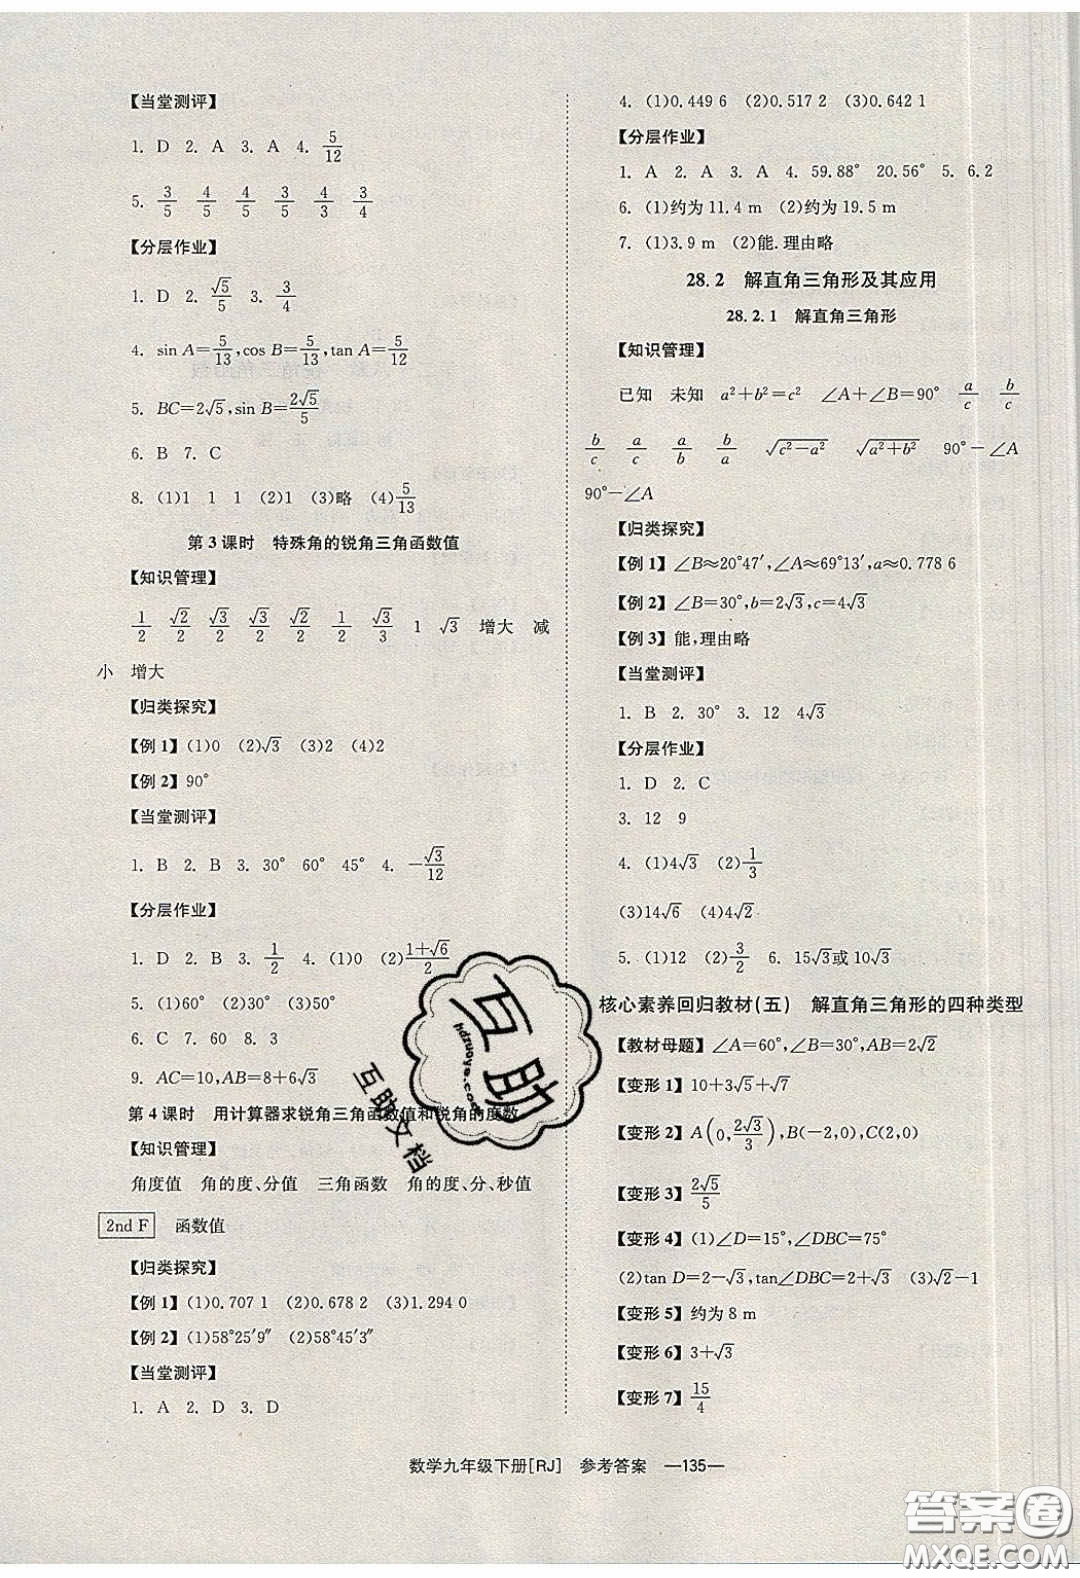 【当堂测评】
1. D 2. A 3. A 4. 5/12
5. 3/5 4/5 4/5 3/5 4/3 3/4
【分层作业】
1. D 2. √5/5 3. 3/4
4. sin A=5/13,cos B=5/13,tan A=5/12
5. BC=2√5,sin B=2√5/5
6. B 7. C
8. (1)1 1 1 (2)1 (3)略 (4)5/13
第3课时 特殊角的锐角三角函数值
【知识管理】
1/2 √2/2 √3/2 √3/2 √2/2 1/2 √3/3 1 √3 增大 减
小 增大
【归类探究】
【例1】(1)0 (2)√3 (3)2 (4)2
【例2】90°
【当堂测评】
1. B 2. B 3. 30° 60° 45° 4. -√3/12
【分层作业】
1. D 2. B 3. 1/2 4. (1)0 (2)(1+√6)/2
5. (1)60° (2)30° (3)50°
6. C 7. 60 8. 3
9. AC=10,AB=8+6√3
第4课时 用计算器求锐角三角函数值和锐角的度数
【知识管理】
角度值 角的度、分值 三角函数 角的度、分、秒值
2nd F 函数值
【归类探究】
【例1】(1)0.707 1 (2)0.678 2 (3)1.294 0
【例2】(1)58°25′9″ (2)58°45′3″
【当堂测评】
1. A 2. D 3. D
4. (1)0.449 6 (2)0.517 2 (3)0.642 1
【分层作业】
1. A 2. A 3. A 4. 59.88° 20.56° 5. 6.2
6. (1)约为11.4 m (2)约为19.5 m
7. (1)3.9 m (2)能.理由略
28.2 解直角三角形及其应用
28.2.1 解直角三角形
【知识管理】
已知 未知 a²+b²=c² ∠A+∠B=90° a/c b/c
b/c a/c a/b b/a √(c²-a²) √(a²+b²) 90°-∠A
90°-∠A
【归类探究】
【例1】∠B≈20°47′,∠A≈69°13′,a≈0.778 6
【例2】∠B=30°,b=2√3,c=4√3
【例3】能,理由略
【当堂测评】
1. B 2. 30° 3. 12 4√3
【分层作业】
1. D 2. C
3. 12 9
4. (1)4√3 (2)1/3
(3)14√6 (4)4√2
5. (1)12 (2)3/2 6. 15√3或10√3
核心素养回归教材(五) 解直角三角形的四种类型
【教材母题】∠A=60°,∠B=30°,AB=2√2
【变形1】10+3√5+√7
【变形2】A(0,2√3/3),B(-2,0),C(2,0)
【变形3】2√5/5
【变形4】(1)∠D=15°,∠DBC=75°
(2)tan D=2-√3,tan∠DBC=2+√3 (3)√2-1
【变形5】约为8 m
【变形6】3+√3
【变形7】15/4
互助
hdzuoye.com
互助文档
数学九年级下册[RJ] 参考答案 —135—
答案圈
MXQE.COM